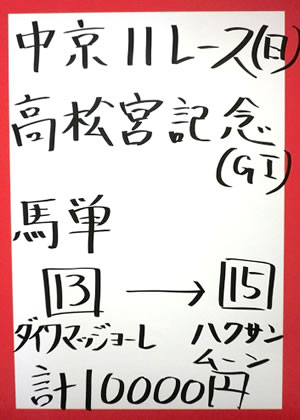 中京11レース(日)
高松宮記念
(GI)
馬単
13 → 15
ダイワマッジョーレ ハクサン
ムーン
計10000円